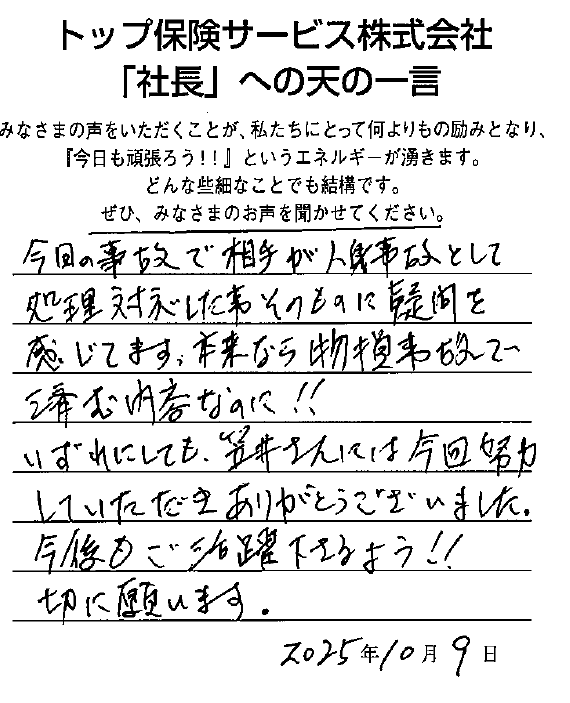 トップ保険サービス株式会社
「社長」への天の一言
みなさまの声をいただくことが、私たちにとって何よりもの励みとなり、
『今日も頑張ろう!!』というエネルギーが湧きます。
どんな些細なことでも結構です。
ぜひ、みなさまのお声を聞かせてください。
今回の事故で相手が人身事故として
処理対応した事そのものに疑問を
感じてます、本来なら物損事故で
済む内容なのに!!
いずれにしても、笠井さんには今回努力
していただきありがとうございました。
今後もご活躍下さるよう!!
切に願います。
2025年10月9日